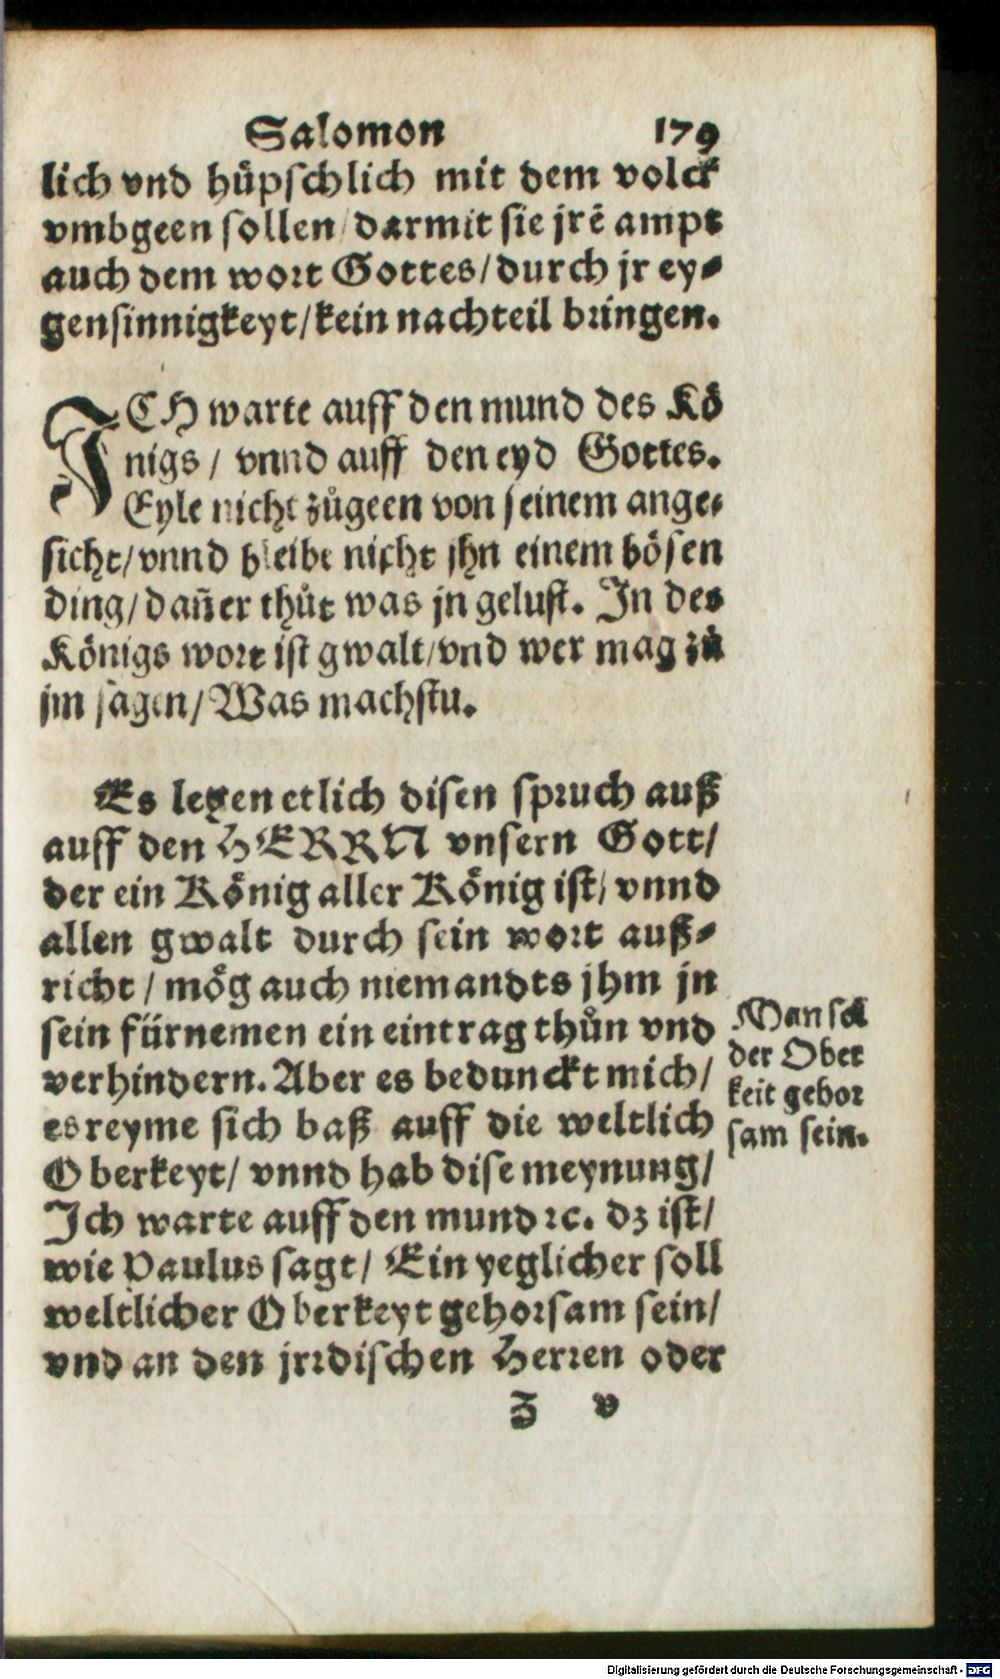 Salomon 179
lich vnd hüpschlich mit dem volck
vmbgeen sollen/darmit sie jrē ampt
auch dem wort Gottes/durch jr ey⸗
gensinnigkeyt/kein nachteil bringen.
ICH warte auff den mund des Kö
nigs/ vnnd auff den eyd Gottes.
Eyle nicht zůgeen von seinem ange⸗
sicht/vnnd bleibe nicht jhn einem bösen
ding/dañ er thůt was jn gelust. In des
Königs wort ist gwalt/vnd wer mag zů
jm sagen/Was machstu.
Es legen etlich disen spruch auß
auff den HERRN vnsern Gott/
der ein König aller König ist/vnnd
allen gwalt durch sein wort auß⸗
richt/mög auch niemandts jhm jn
sein fürnemen ein eintrag thůn vnd
verhindern. Aber es bedunckt mich/
es reyme sich baß auff die weltlich
Oberkeyt/ vnnd hab dise meynung/
Ich warte auff den mund ꝛc. dz ist/
wie Paulus sagt/ Ein yeglicher soll
weltlicher Oberkeyt gehorsam sein/
vnd an den jrrdischen Herren oder
Man sol
der Ober
keit gehor
sam sein.
Z v
Digitalisierung gefördert durch die Deutsche Forschungsgemeinschaft - DFG